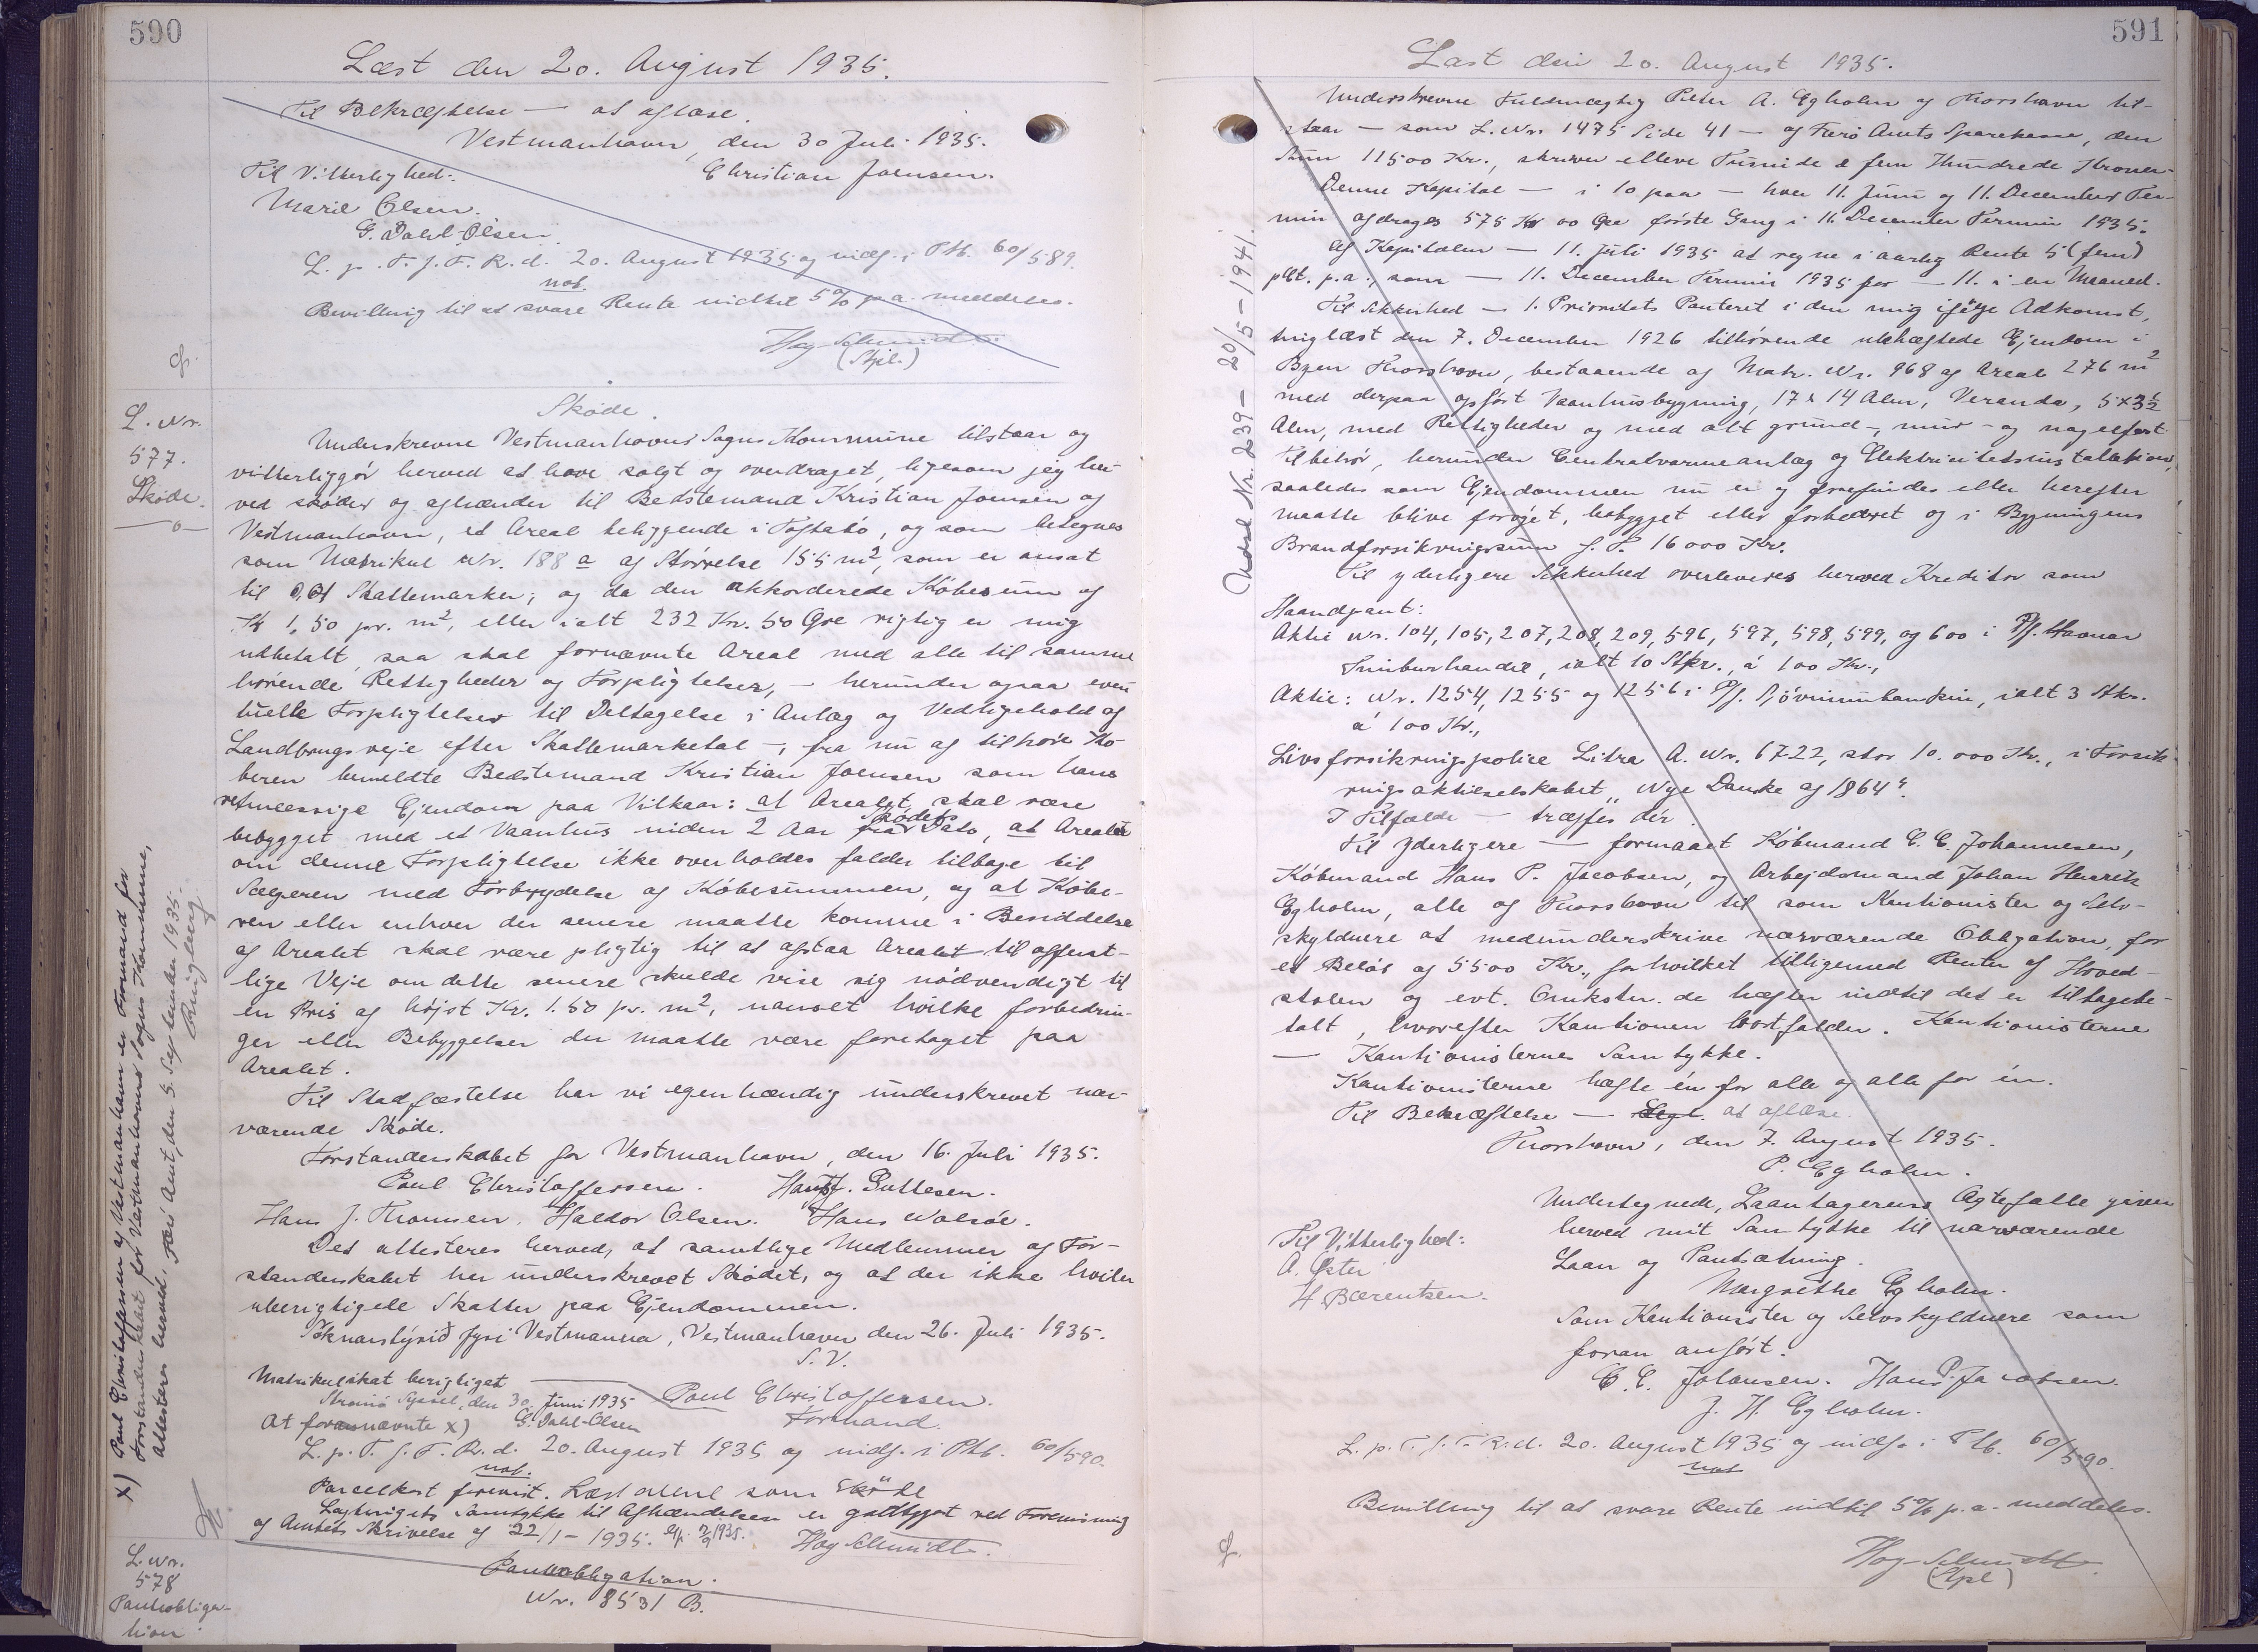 590
Læst den 20. August 1935.
Til Bekræftelse — at aflæse.
Vestmanhavn, den 30 Juli 1935.
Til Vitterlighed: Christian Joensen.
Marie Olsen.
G. Dahl-Olsen.
L. p. T. f. F. R. d. 20. August 1935 og indf. i Ptb. 60/589.
not.
Bevilling til at svare Rente indtil 5% p.a. meddeles.
Høg-Schmidt.
(Stpl.)
cf.
L. Nr.
577.
Skøde.
Skøde.
Underskrevne Vestmanhavns Sogns Kommune tilstaar og
vitterliggør herved at have solgt og overdraget, ligesom jeg her-
ved skøder og afhænder til Bedstemand Kristian Joensen af
Vestmanhavn, et Areal beliggende i Toftabø, og som betegnes
som Matrikul Nr. 188 a af Størrelse 155 m², som er ansat
til 0,01 Skattemarker; og da den akkorderede Købesum af
Kr 1,50 pr. m², eller ialt 232 Kr. 50 Øre rigtig er mig
udbetalt, saa skal fornævnte Areal med alle til samme
hørende Rettigheder og Forpligtelser, — herunder ogsaa even-
tuelle Forpligtelser til Deltagelse i Anlæg og Vedligehold af
Landbrugsveje efter Skattemarketal —, fra nu af tilhøre Kø-
beren bemeldte Bedstemand Kristian Joensen som hans
retmæssige Ejendom paa Vilkaar: at Arealet skal være
bebygget med et Vaanhus inden 2 Aar fra Skødets Dato, at Arealet
om denne Forpligtelse ikke overholdes falder tilbage til
Sælgeren med Forbrydelse af Købesummen, og at Købe-
ren eller enhver der senere maatte komme i Besiddelse
af Arealet skal være pligtig til at afstaa Arealet til offent-
lige Veje om dette senere skulde vise sig nødvendigt til
en Pris af højst Kr. 1.50 pr. m², uanset hvilke forbedrin-
ger eller Bebyggelser der maatte være foretaget paa
Arealet.
Til Stadfæstelse har vi egenhændig underskrevet nær-
værende Skøde.
Forstanderskabet for Vestmanhavn, den 16. Juli 1935.
Poul Christoffersen. Hans J. Guttesen.
Hans J. Thomsen. Haldor Olsen. Hans Walsøe.
Det attesteres herved, at samtlige Medlemmer af For-
standerskabet har underskrevet Skødet, og at der ikke hviler
uberigtigede Skatter paa Ejendommen.
Sóknarstýrið fyri Vestmanna, Vestmanhavn den 26. Juli 1935.
S. V.
Matrikulskat berigtiget
Strømø Syssel, den 30. Juni 1935 Poul Christoffersen.
At forannævnte x) G. Dahl-Olsen Formand.
L. p. T. f. F. R. d. 20. August 1935 og indf. i Ptb. 60/590.
not.
Parcelkort forevist. Læst alene som Skøde
Lagtingets Samtykke til Afhændelsen er godtgjort ved Forevisning
af Amtets Skrivelse af 22/1 - 1935. cf. 7/9 1935. Høg Schmidt.
x) Poul Christoffersen af Vestmanhavn er Formand for
Forstanderskabet for Vestmanhavns Sogns Kommune,
attesteres herved. Færø Amt, den 5. September 1935.
L. Nr.
578
Pantobliga-
tion.
Pantobligation.
Nr. 8531 B.
591
Læst den 20. August 1935.
Underskrevne Fuldmægtig Peter A. Egholm af Thorshavn til-
staar — som L. Nr. 1475 Side 41 — af Færø Amts Sparekasse, den
Sum 11500 Kr., skriver elleve Tusinde & fem Hundrede Kroner.
Denne Kapital — i 10 paa — hver 11. Juni og 11. December Ter-
min afdrages 575 Kr 00 Øre første Gang i 11. December Termin 1935.
Af Kapitalen — 11. Juli 1935 at regne i aarlig Rente 5 (fem)
pCt. p.a.; som — 11. December Termin 1935 for — 11. i en Maaned.
Til Sikkerhed — 1. Prioritets Panteret i den mig ifølge Adkomst,
tinglæst den 7. December 1926 tilhørende ubehæftede Ejendom i
Byen Thorshavn, bestaaende af Matr. Nr. 968 af Areal 276 m²
med derpaa opført Vaanhusbygning, 17 x 14 Alen, Veranda, 5 x 3½
Alen, med Rettigheder og med alt grund-, mur- og nagelfast
Tilbehør, herunder Centralvarmeanlæg og Elektricitetsinstallation,
saaledes som Ejendommen nu er og forefindes eller herefter
maatte blive forøjet, bebygget eller forbedret og i Bygningens
Brandforsikringssum f. T. 16000 Kr.
Til yderligere Sikkerhed overleveres herved Kreditor som
Haandpant:
Aktie Nr. 104, 105, 207, 208, 209, 596, 597, 598, 599, og 600 i P/f. Havnar
Timburhandil, ialt 10 Stkr., á 100 Kr.,
Aktie: Nr. 1254, 1255 og 1256 i P/f. Sjóvinnubankin, ialt 3 Stkr.
á 100 Kr.,
Livsforsikringspolice Litra A. Nr. 6722, stor 10.000 Kr., i Forsik-
ringsaktieselskabet „Nye Danske af 1864“.
I Tilfælde — træffes der.
Til yderligere — formaaet Købmand C. C. Johannesen,
Købmand Hans P. Jacobsen, og Arbejdsmand Johan Henrik
Egholm, alle af Thorshavn til som Kautionister og Selv-
skyldnere at medunderskrive nærværende Obligation, for
et Beløb af 5500 Kr., for hvilket tilligemed Renter af Hoved-
stolen og evt. Omkostn. de hæfter indtil det er tilbagebe-
talt, hvorefter Kautionen bortfalder. Kautionisterne
— Kautionisternes Samtykke.
Kautionisterne hæfte én for alle og alle for én.
Til Bekræftelse — at aflæse.
Thorshavn, den 7. August 1935.
P. Egholm.
Undertegnede, Laantagerens Ægtefælle giver
herved mit Samtykke til nærværende
Laan og Pantsætning.
Margrethe Egholm.
Til Vitterlighed:
A. Øster
H. Bærentsen.
Som Kautionister og Selvskyldnere som
foran anført.
C. C. Johansen. Hans P. Jacobsen.
J. H. Egholm.
L. p. T. f. F. R. d. 20. August 1935 og indf. i Ptb. 60/590.
not
Bevilling til at svare Rente indtil 5% p.a. meddeles.
Høg-Schmidt.
(Stpl)
cf.
Udsl. Nr. 239 - 20/5 - 1941.